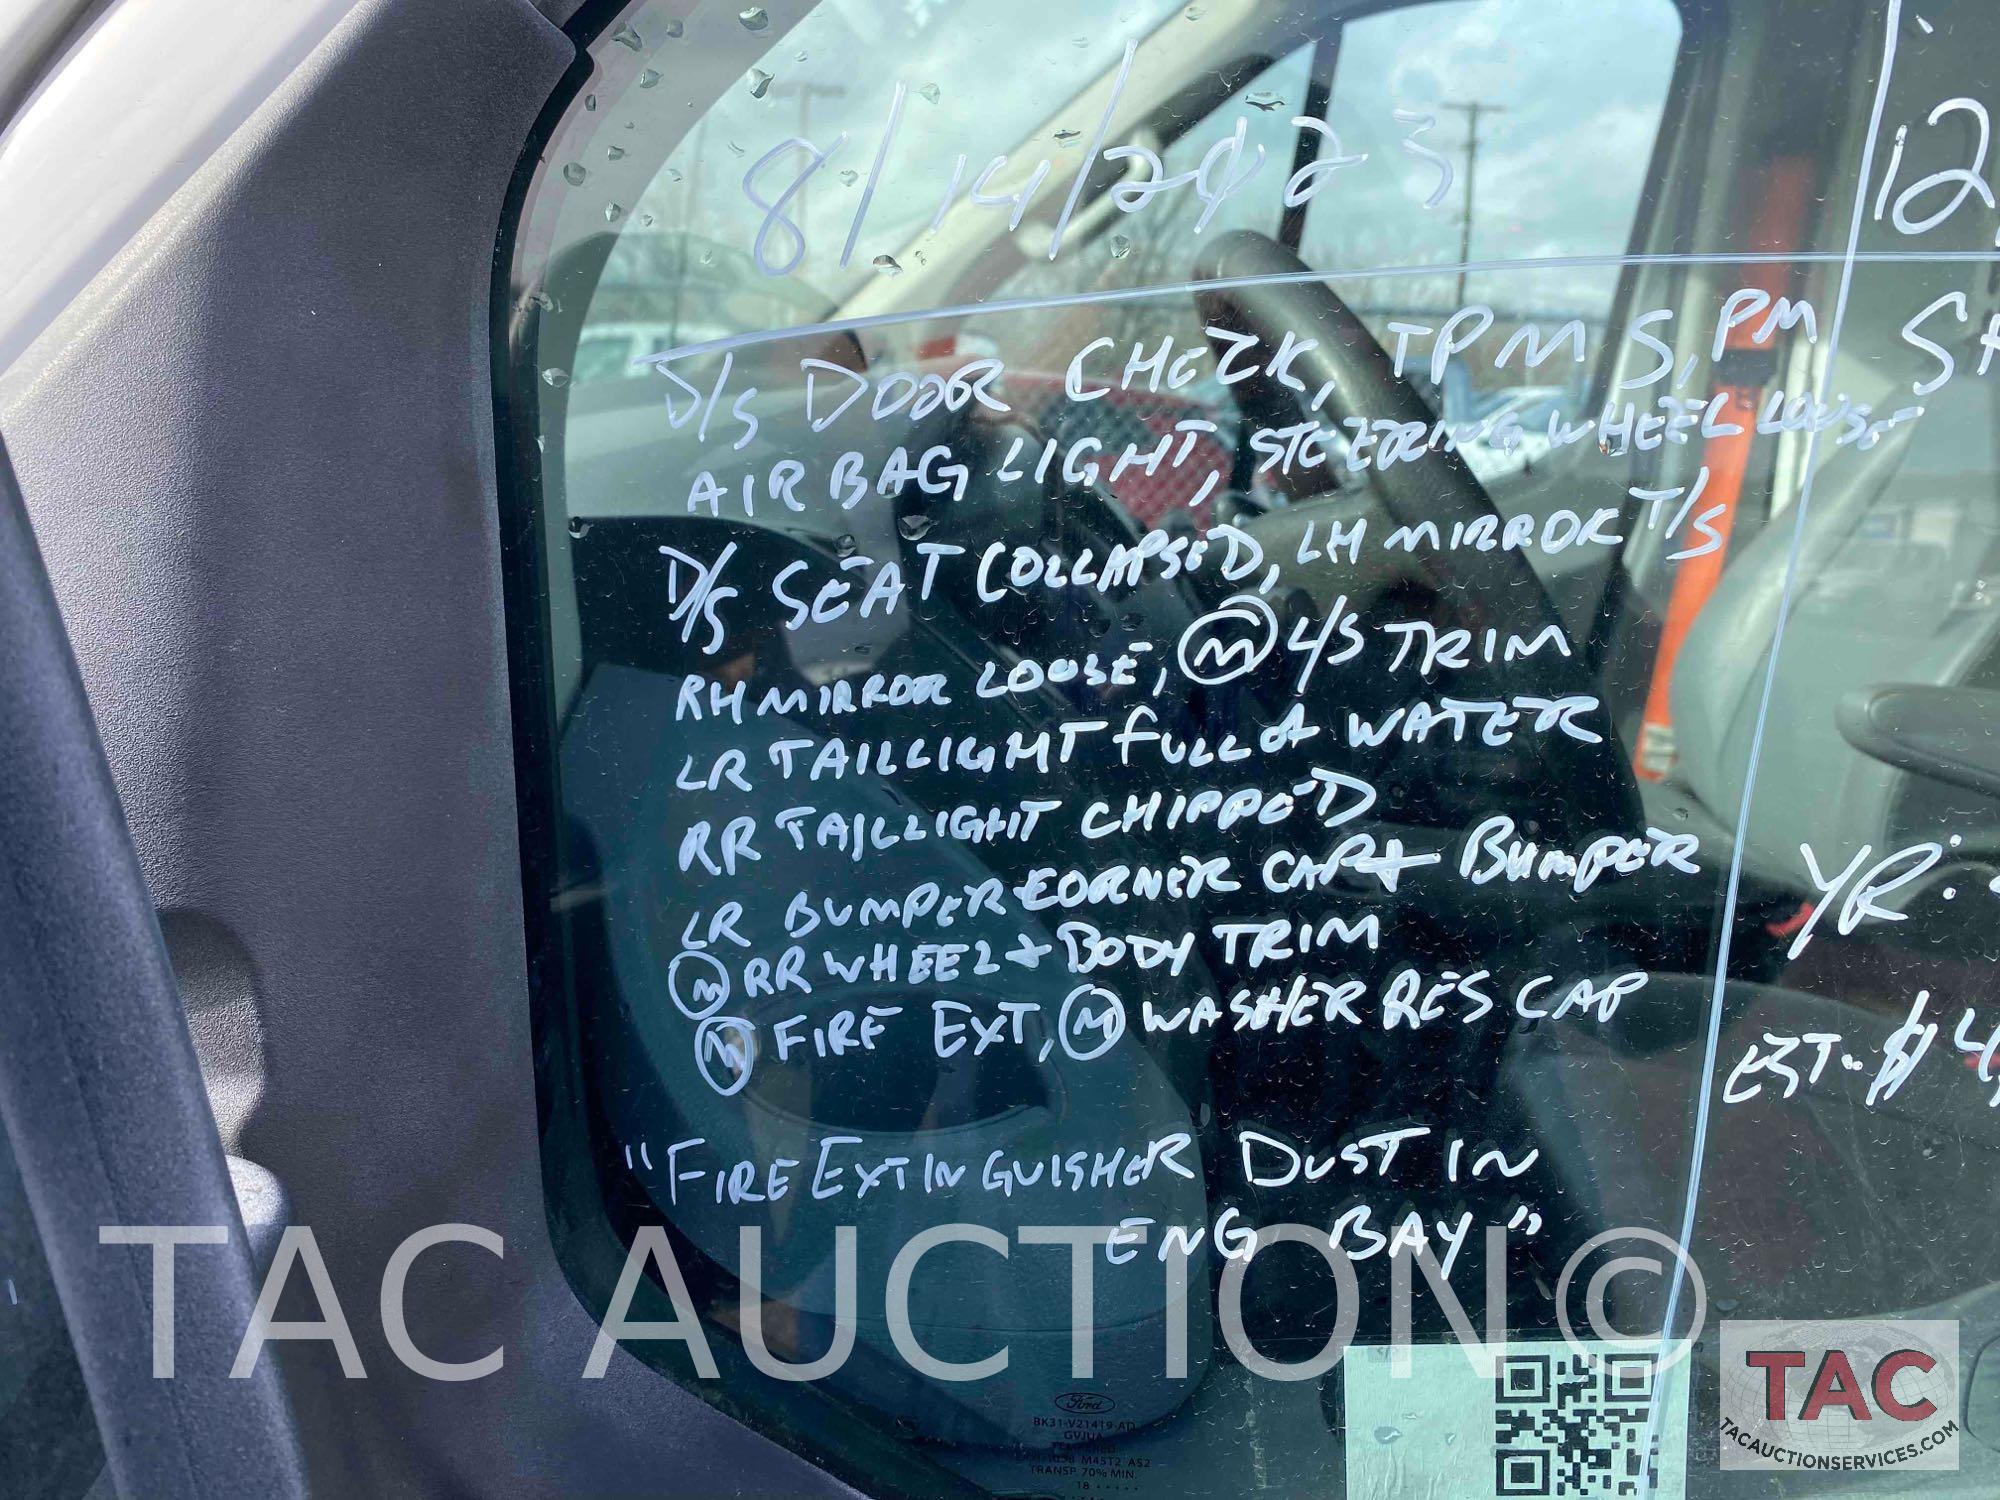 8/14/2023
12
D/S DOOR CHECK, TPMS, PM
AIR BAG LIGHT, STEERING WHEEL LOOSE
D/S SEAT COLLAPSED, LH MIRROR T/S
RH MIRROR LOOSE, Ⓜ L/S TRIM
LR TAILLIGHT FULL of WATER
RR TAILLIGHT CHIPPED
LR BUMPER CORNER CAP + BUMPER
Ⓜ RR WHEEL + BODY TRIM
Ⓜ FIRE EXT, Ⓜ WASHER RES CAP
YR:
EST. $4,
"FIRE EXTINGUISHER DUST IN
ENG BAY"
TAC AUCTION©
Ford
BK31-V21419-AD
GVJUA
TEMPERED
M45T2 AS2
TRANSP. 70% MIN.
18
TAC
TACAUCTIONSERVICES.COM